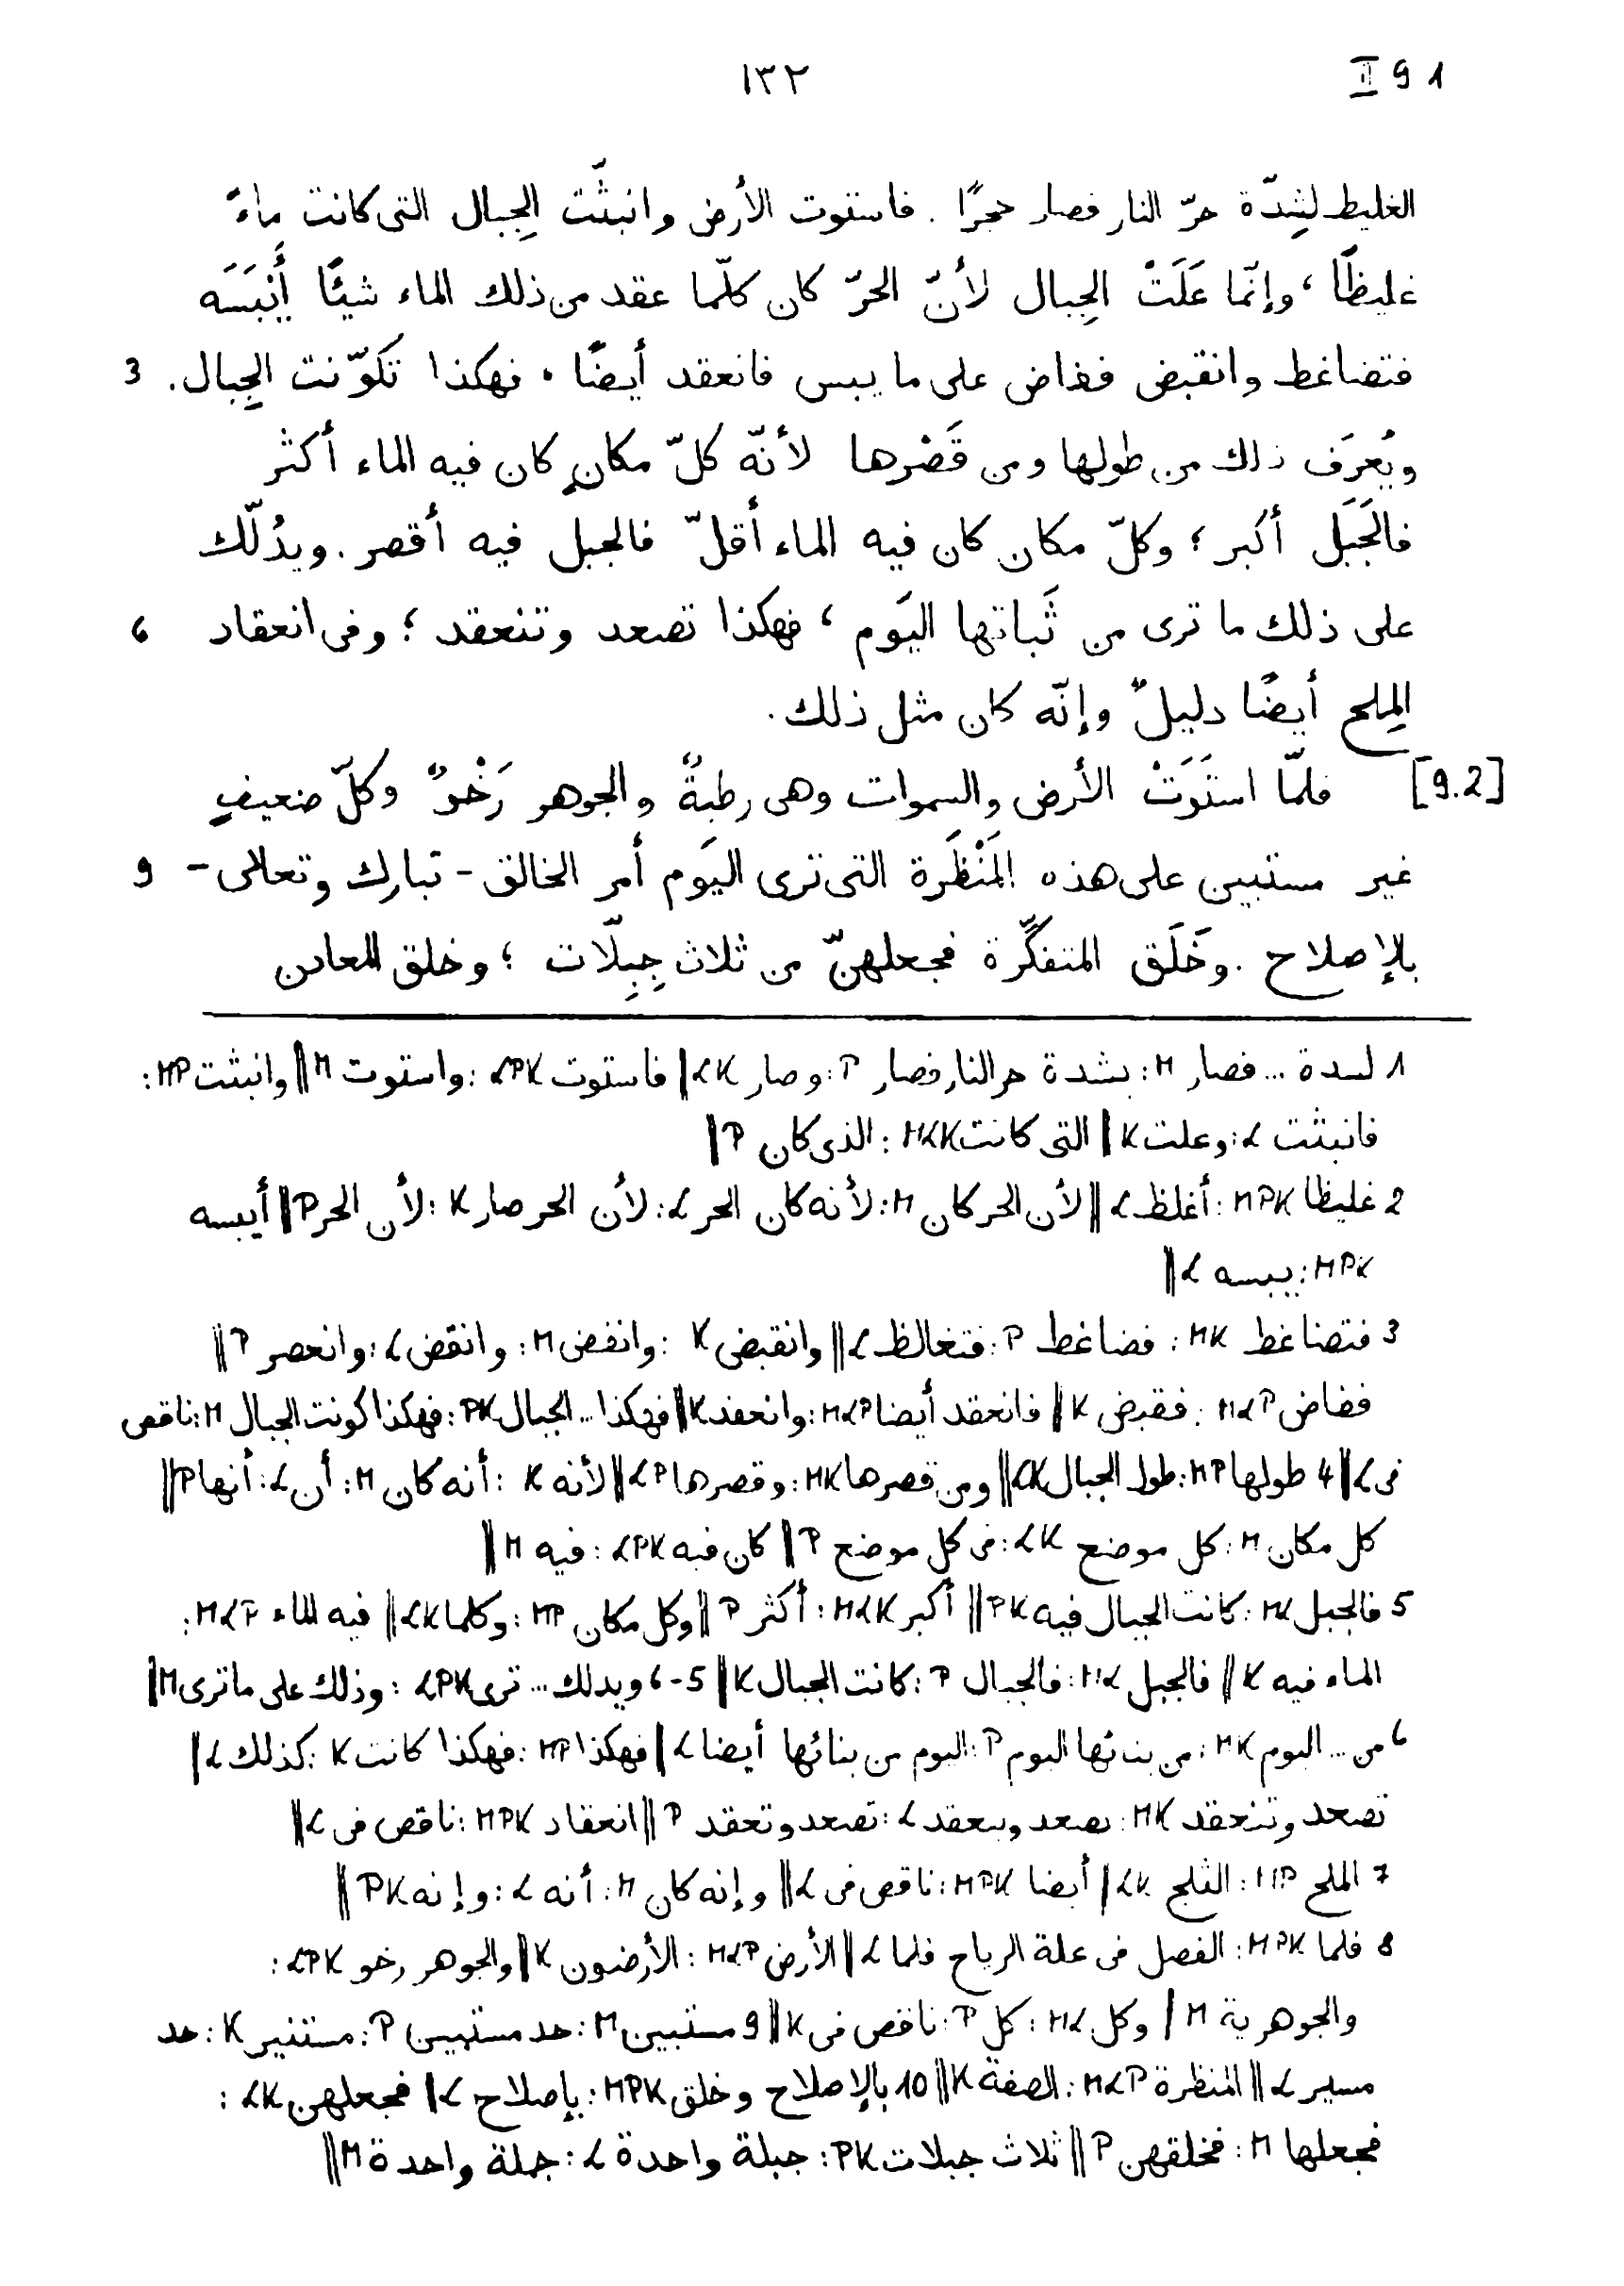 ١٣٢ II 9 1
الغليظ لشِدّة حرّ النار فصار حجرًا . فاستوت الأرض وانبثّت الجِبال التى كانت ماءً
غليظًا ، وإنّما عَلَتْ الجِبال لأنّ الحرّ كان كلّما عقد من ذلك الماء شيئًا أَيْبَسَه
فتضاغط وانقبض ففاض على ما يبس فانعقد أيضًا . فهكذا تَكوّنت الجِبال . 3
ويُعرَف ذلك من طولها ومن قَصْرها لأنّه كلّ مكانٍ كان فيه الماء أكثر
فالجَبَل أكبر ؛ وكلّ مكان كان فيه الماء أقلّ فالجبل فيه أقصر . ويدُلّك
على ذلك ما ترى من ثَباتها اليَوم ، فهكذا تصعد وتنعقد ؛ وفى انعقاد 6
المِلح أيضًا دليلٌ وإنّه كان مثل ذلك .
[9.2] فلمّا استَوَتْ الأرض والسموات وهى رطبةٌ والجوهر رَخْوٌ وكلّ ضعيفٍ
غير مستبين على هذه المَنْظَرة التى ترى اليَوم أمر الخالق - تبارك وتعالى - 9
بالإصلاح . وخَلَق المتفكِّرة فجعلهنّ من ثلاث جِبِلّات ؛ وخلق المعادن
1 لسدة ... فصار M : بشدة حر النار فصار P : وصار LK || فاستوت LPK : واستوت M || وانبثت MP :
فانبثت L : وعلت K || التى كانت MLK : الذى كان P ||
2 غليظا MPK : أغلظ L || لأن الحر كان M : لأنه كان الحر L : لأن الحر صار K : لأن الحر P || أيبسه
MPK : يبسه L ||
3 فتضاغط MK : فضاغط P : فتغالظ L || وانقبض K : وانفض M : وانقض L : وانعصر P ||
ففاض MLP : فقبض K || فانعقد أيضا MLP : وانعقد K || فهكذا ... الجبال PK : فهكذا كونت الجبال M : ناقص
فى L || 4 طولها MP : طول الجبال LK || ومن قصرها MK : وقصرها LP || لأنه K : أنه كان M : أن L : أنها P ||
كل مكان M : كل موضع LK : فى كل موضع P || كان فيه LPK : فيه M ||
5 فالجبل ML : كانت الجبال فيه PK || أكبر MLK : أكثر P || وكل مكان MP : وكلما LK || فيه الماء MLP :
الماء فيه K || فالجبل ML : فالجبال P : كانت الجبال K || 5-6 ويدلك ... ترى LPK : وذلك على ما ترى M ||
6 من ... اليوم MK : من بنائها اليوم P : اليوم من بنائها أيضا L || فهكذا MP : فهكذا كانت K : كذلك L ||
تصعد وتنعقد MK : يصعد وينعقد L : تصعد وتعقد P || انعقاد MPK : ناقص فى L ||
7 الملح MP : الثلج LK || أيضا MPK : ناقص فى L || وإنه كان M : أنه L : وإنه PK ||
8 فلما MPK : الفصل فى علة الرياح فلما L || الأرض MLP : الأرضون K || والجوهر رخو LPK :
والجوهرية M || وكل ML : كل P : ناقص فى K || 9 مستبين M : حد مستبين P : مستنير K : حد
مسير L || المنظرة MLP : الصفة K || 10 بالإصلاح وخلق MPK : بإصلاح L || فجعلهن LK :
فجعلها M : فخلقهن P || ثلاث جبلات PK : جبلة واحدة L : جملة واحدة M ||